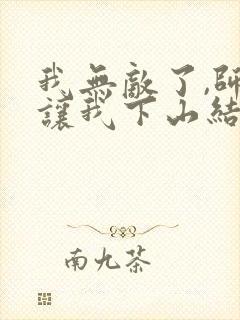 我無敵了,師
讓我下山結
南九茶